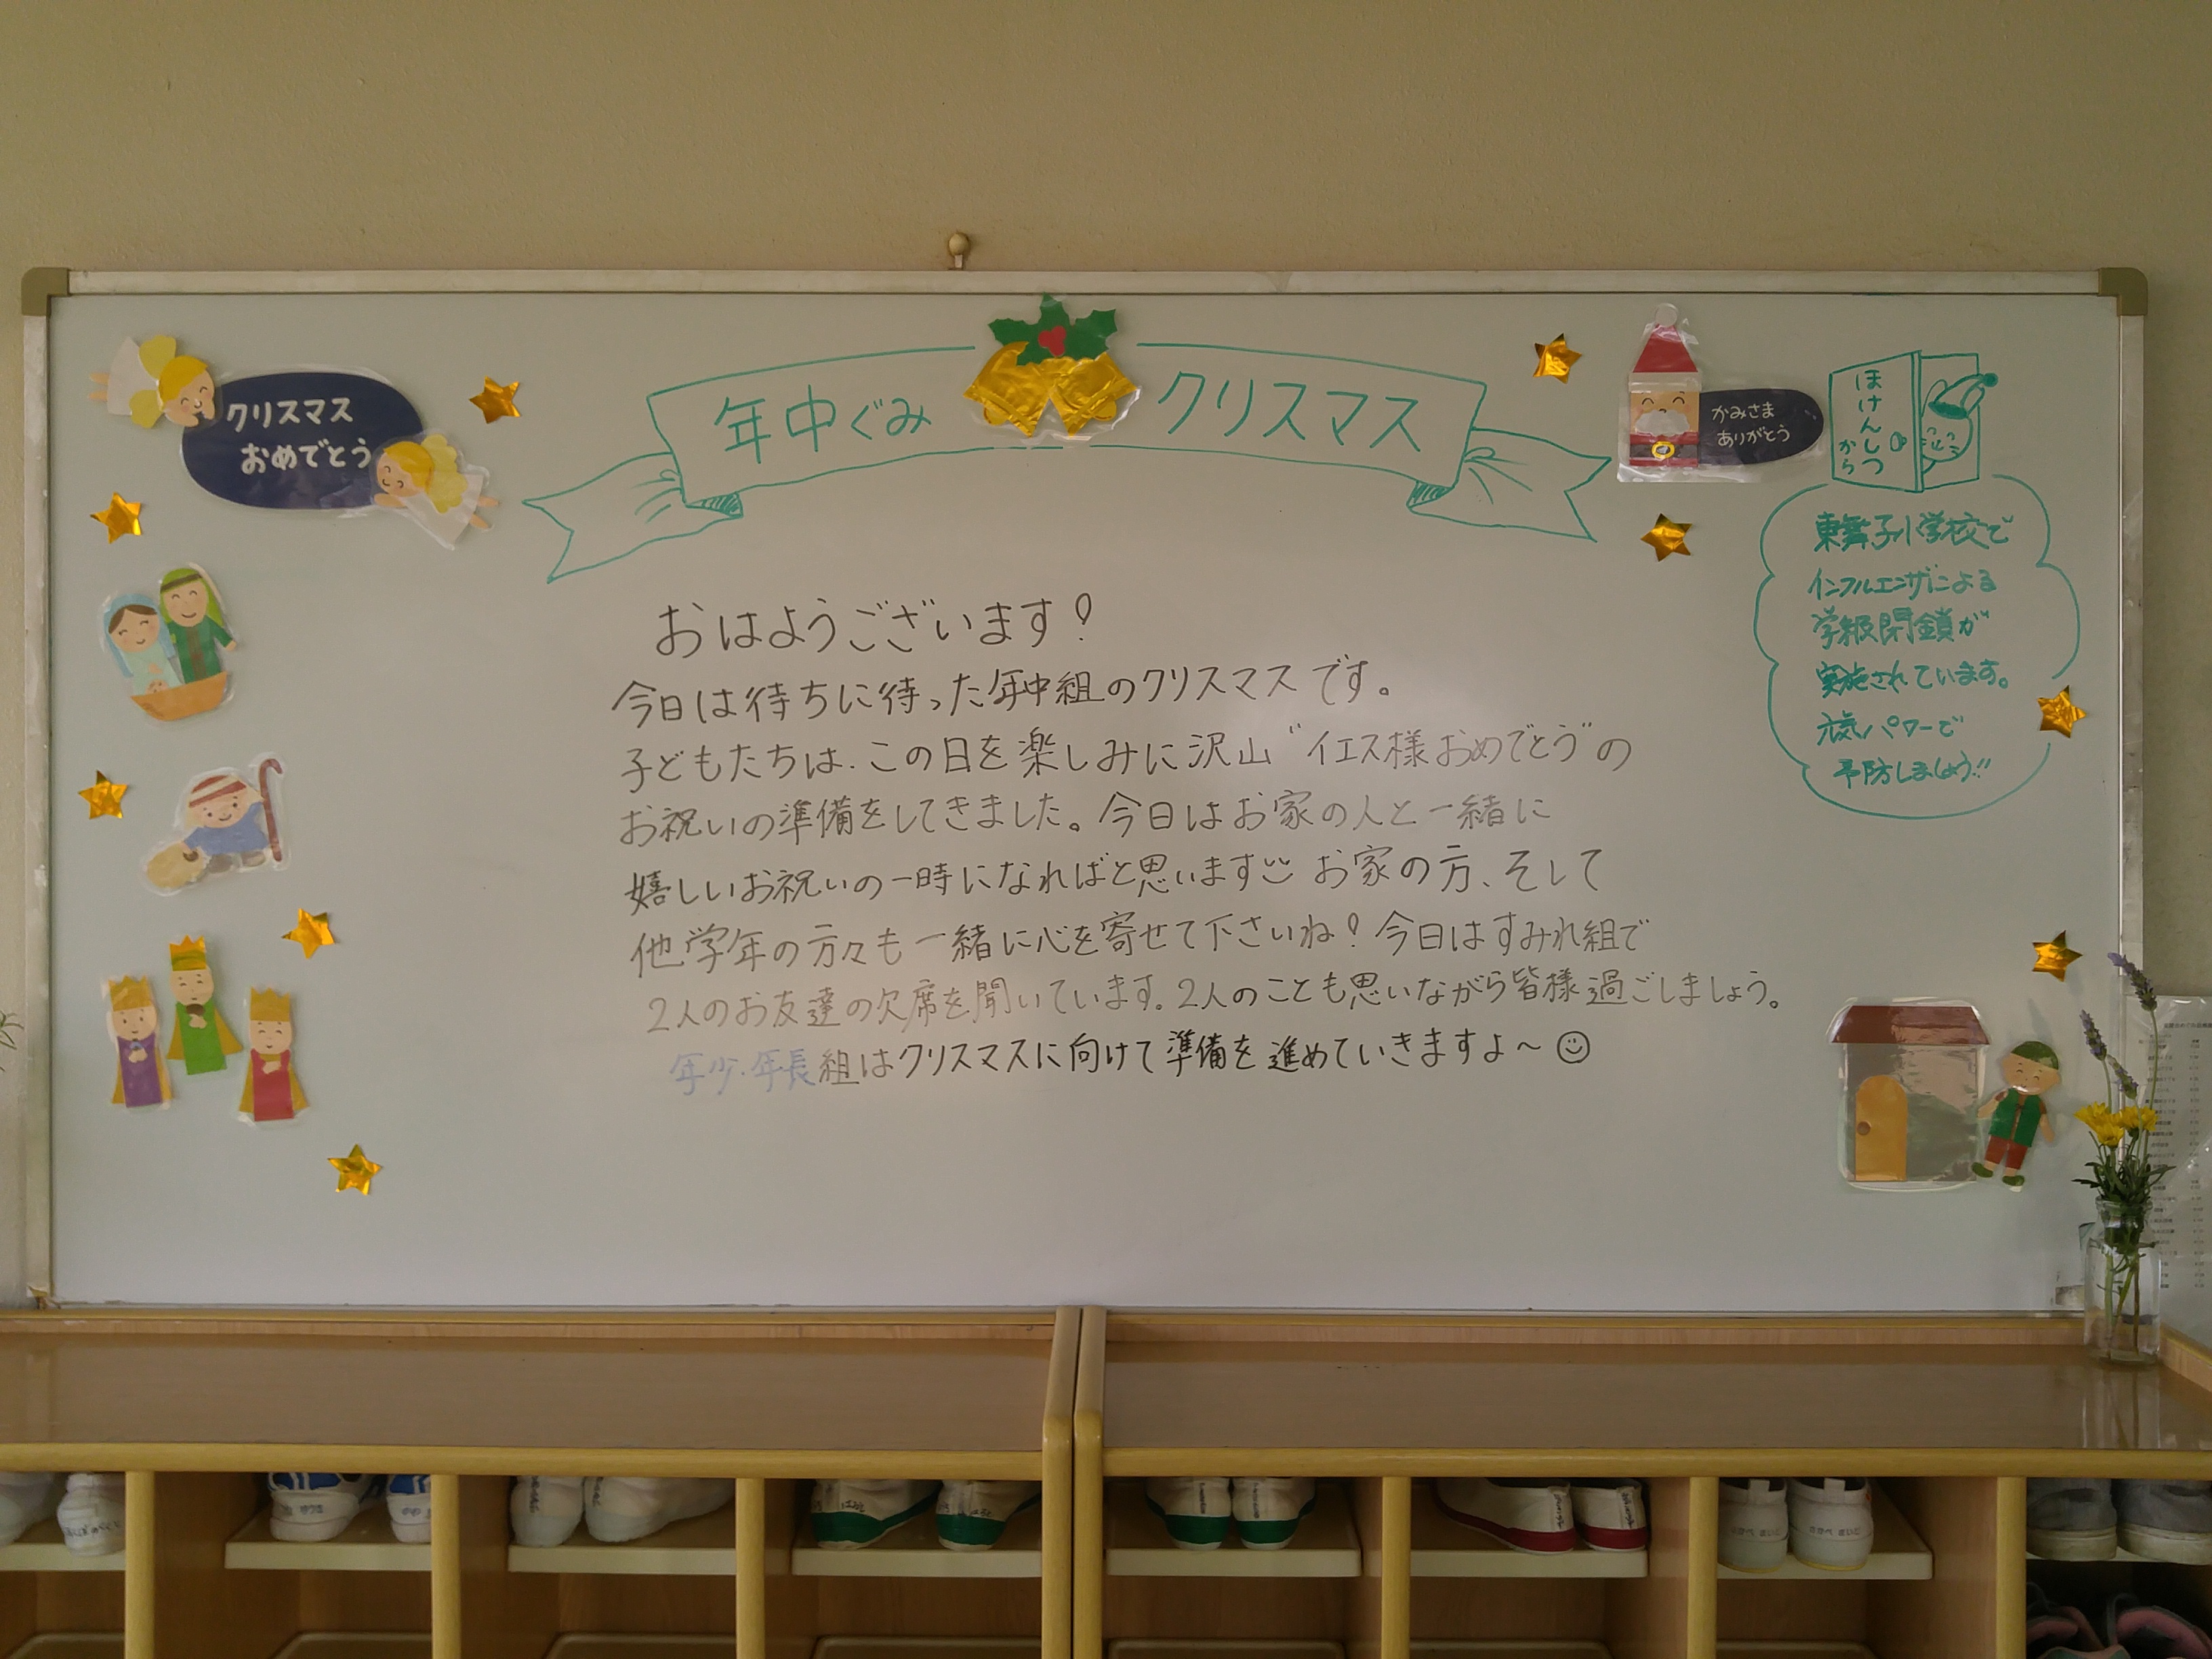 クリスマス
おめでとう
年中ぐみ クリスマス
かみさま
ありがとう
ほけんしつ
から
東舞子小学校で
インフルエンザによる
学級閉鎖が
実施されています。
元気パワーで
予防しましょう!!
おはようございます!
今日は待ちに待った年中組のクリスマスです。
子どもたちは、この日を楽しみに沢山“イエス様おめでとう”の
お祝いの準備をしてきました。今日はお家の人と一緒に
嬉しいお祝いの一時になればと思います お家の方、そして
他学年の方々も一緒に心を寄せて下さいね!今日はすみれ組で
2人のお友達の欠席を聞いています。2人のことも思いながら皆様過ごしましょう。
年少・年長組はクリスマスに向けて準備を進めていきますよ〜